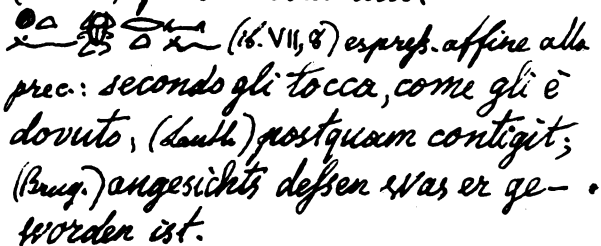 (ib. VII, 8) espreß. affine alla
prec.: secondo gli tocca, come gli è
dovuto; (Lauth.) postquam contigit;
(Brug.) angesichts deßsen was er ge-
worden ist.